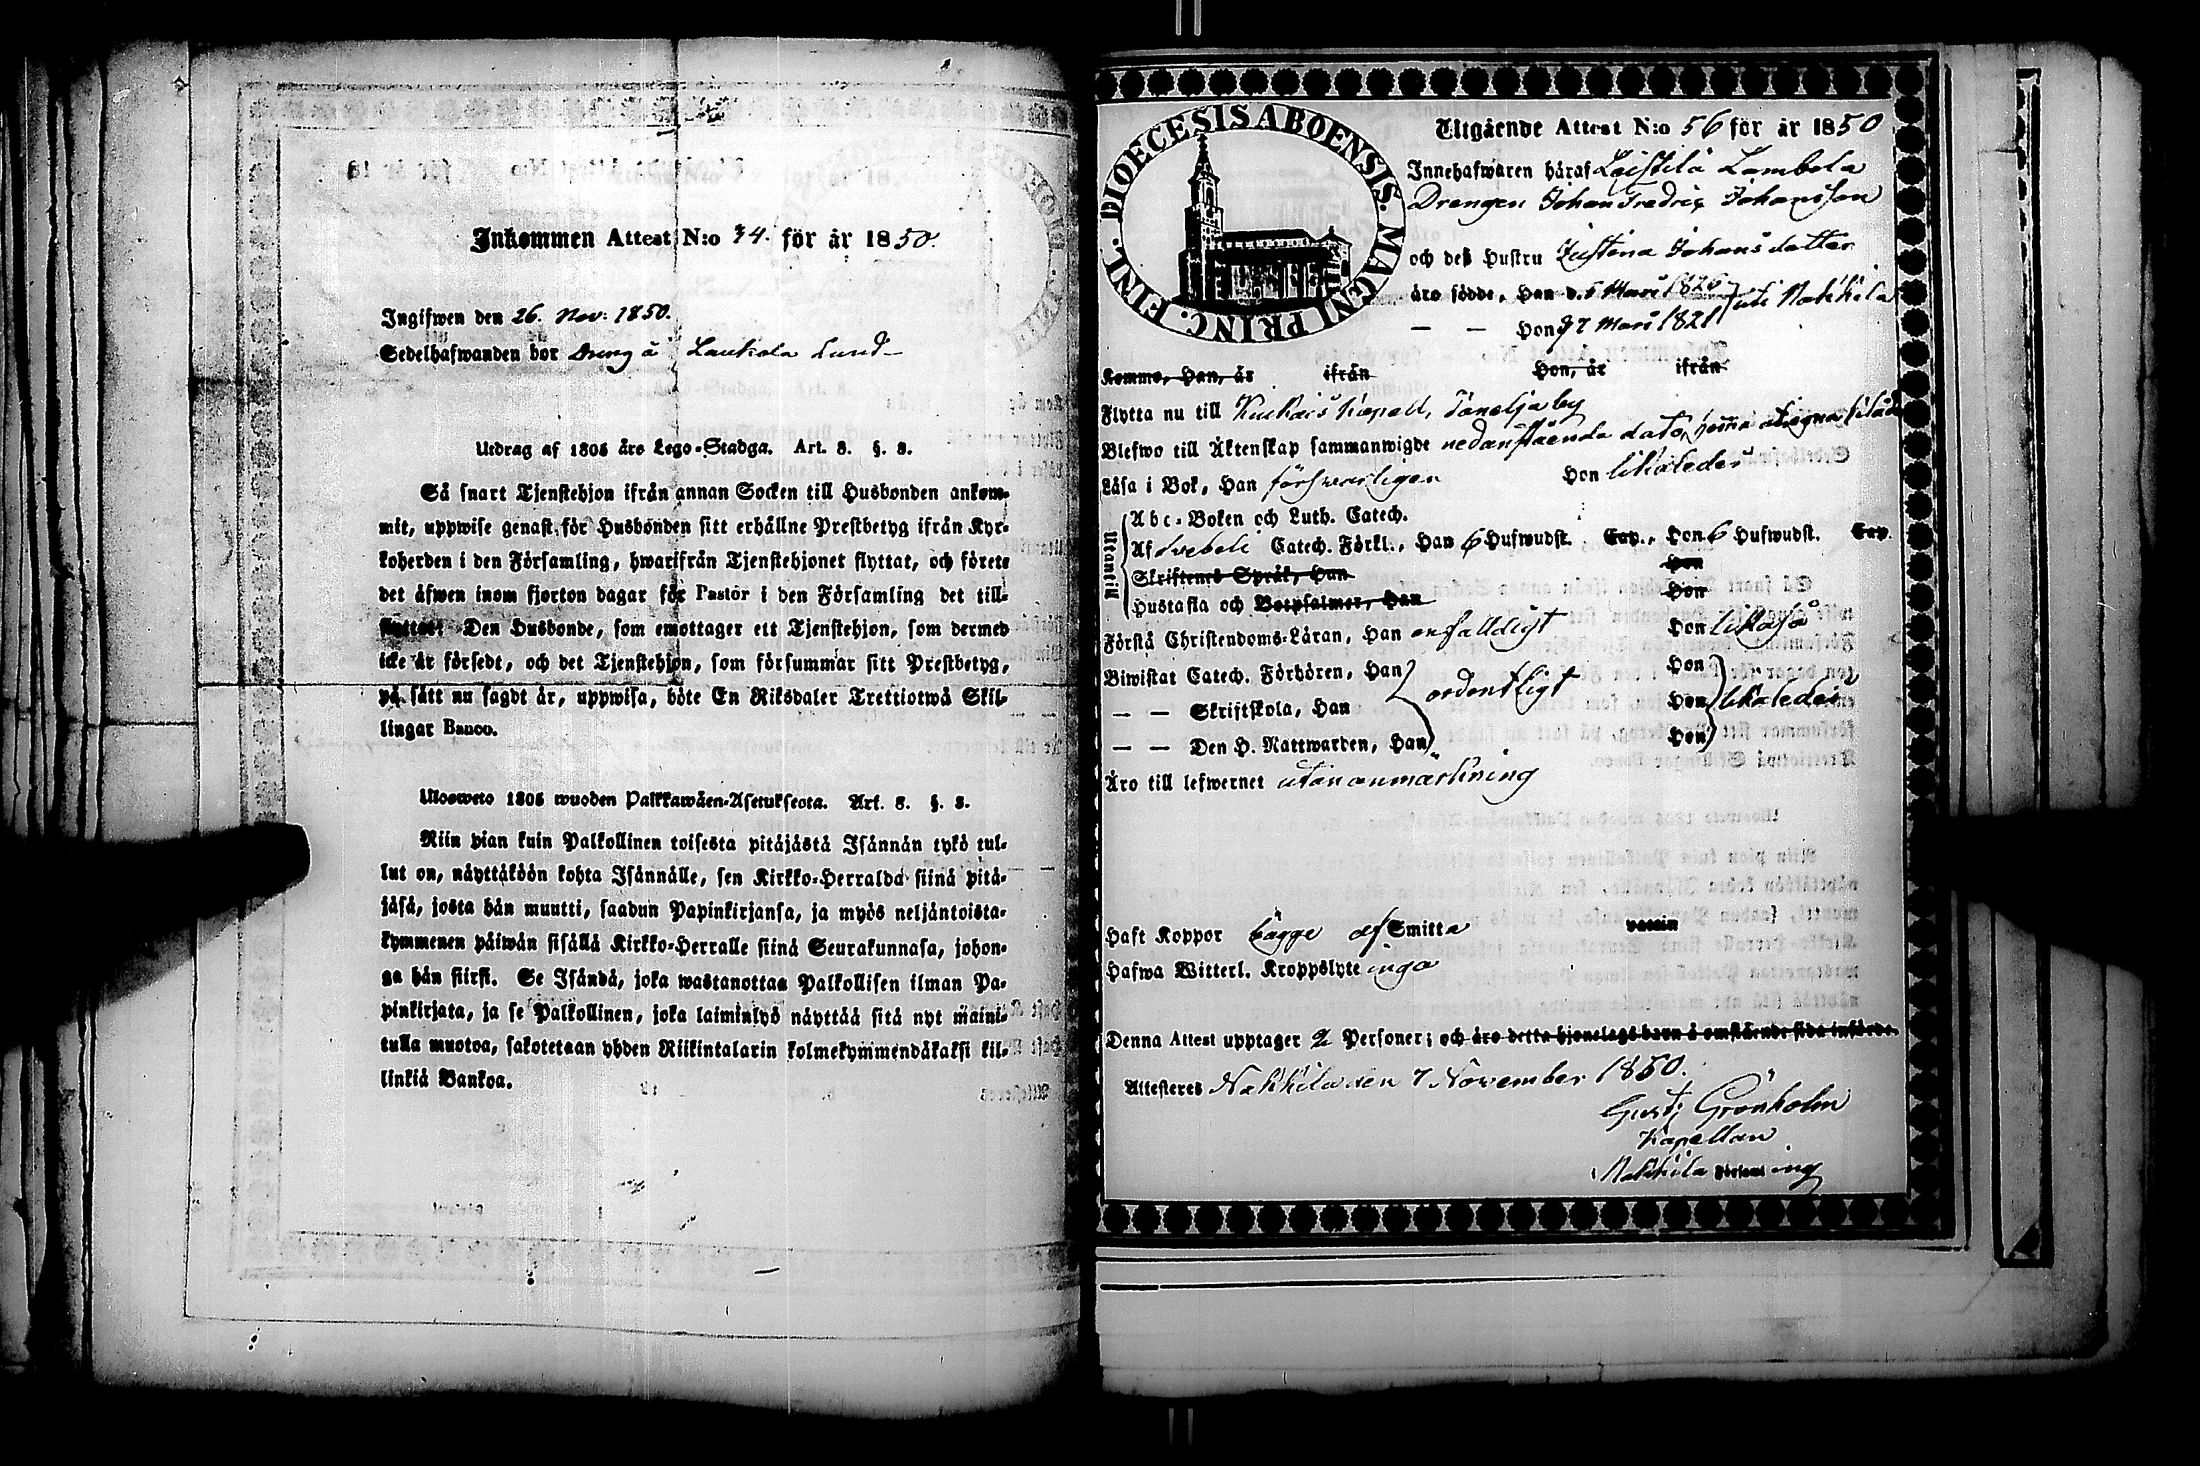 Inkommen Attest N:o 34. för år 1850.
Ingifwen den 26. Nov: 1850.
Sedelhafwanden bor Dreng å Laukola Lund
Utdrag af 1805 års Lego-Stadga. Art. 8. §. 8.
Så snart Tjenstehjon ifrån annan Socken till Husbonden ankom-
mit, uppwise genast för Husbonden sitt erhållne Prestbetyg ifrån Kyr-
koherden i den Församling, hwarifrån Tjenstehjonet flyttat, och förete
det äfwen inom fjorton dagar för Pastor i den Församling det till-
flyttat. Den Husbonde, som emottager ett Tjenstehjon, som dermed
icke är försedt, och det Tjenstehjon, som försummar sitt Prestbetyg,
på sätt nu sagdt är, uppwisa, böte En Riksdaler Trettiotwå Skil-
lingar Banco.
Ulosweto 1805 wuoden Palkkawäen-Asetuksesta. Art. 8. §. 8.
Niin pian kuin Palkollinen toisesta pitäjästä Isännän tykö tul-
lut on, näyttäköön kohta Isännälle, sen Kirkko-Herralda siinä pitä-
jäsä, josta hän muutti, saadun Papinkirjansa, ja myös neljäntoista-
kymmenen päiwän sisällä Kirkko-Herralle siinä Seurakunnasa, johon-
ga hän siirsi. Se Isändä, joka wastanottaa Palkollisen ilman Pa-
pinkirjata, ja se Palkollinen, joka laiminlyö näyttää sitä nyt maini-
tulla muotoa, sakotetaan yhden Riikintalarin kolmekymmendäkaksi kil-
linkiä Bankoa.
FINL. DIOECESIS ABOENSIS. MAGNI PRINC.
Utgående Attest N:o 56 för år 1850
Innehafwaren häraf Leistilä Lambola
Drengen Johan Fredric Johansson
och deß Hustru Justina Johansdotter
äro födde, Han d. 5 Mars 1826
— — Hon 27 Mars 1821 uti Nakkila
Komne, Han, år ifrån Hon, år ifrån
Flytta nu till Kiukais Kapell, Paneljaby
Blefwo till Äktenskap sammanwigde nedanstående dato,
Läsa i Bok, Han försvarligen Hon likaledes
Utantill
Abc-Boken och Luth. Catech.
Af Svebeli Catech. Förkl., Han 6 Hufwudst. Cap., Hon 6 Hufwudst. Cap.
Skriftenes Språk, Han Hon
Hustafla och Botpsalmer, Han Hon
Förstå Christendoms-Läran, Han enfaldigt Hon likaså
Biwistat Catech. Förhören, Han ordentligt Hon likaledes
— — Skriftskola, Han Hon
— — Den H. Nattwarden, Han Hon
Äro till lefwernet utan anmärkning
Haft Koppor bägge af Smitta vaccin
Hafwa Witterl. Kroppslyte inga
Denna Attest upptager 2 Personer; och äro detta hjonelags barn å omstående sida införde.
Attesteres Nakkila den 7 November 1850.
Gust: Grönholm
Kapellan
Nakkila Församl ing